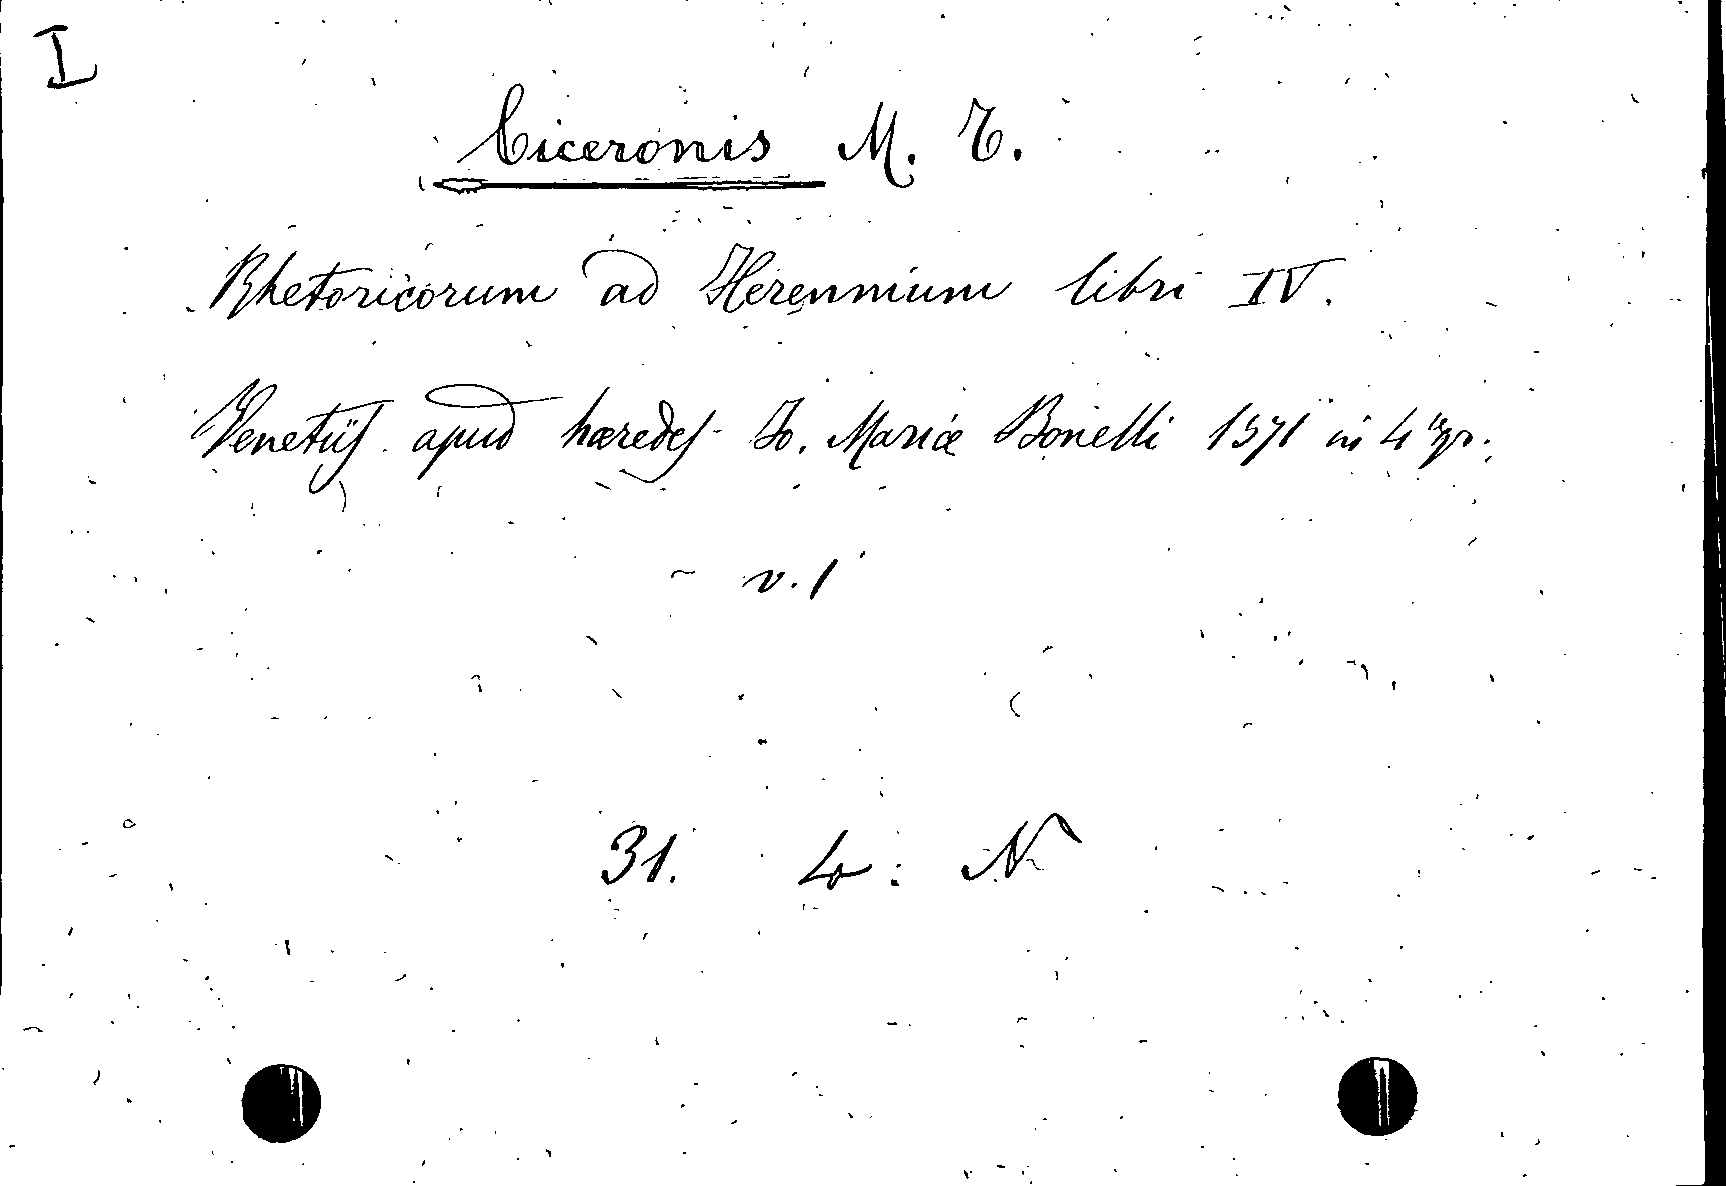 I
Ciceronis M. T.
Rhetoricorum ad Herennium libri IV.
Venetijs apud hæredes Io. Mariæ Bonelli 1571 in 4°
v. 1
31. L : N